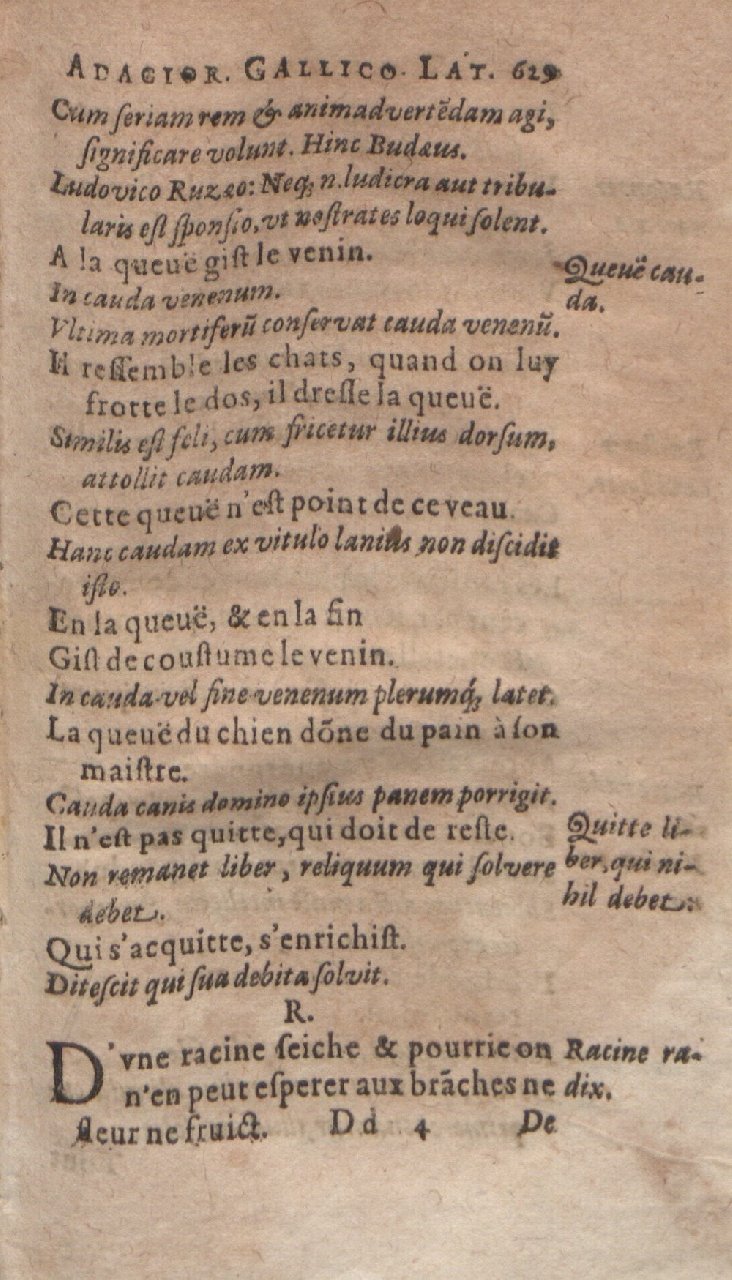 ADAGIOR. GALLICO. LAT. 629
Cum ſeriam rem & animadvertẽdam agi,
ſignificare volunt. Hinc Budæus.
Ludovico Ruzæo: Neq; n. ludicra aut tribu-
laris eſt ſponſio, vt noſtrates loqui ſolent.
A la queuë giſt le venin.
Queuë cau-
da.
In cauda venenum.
Vltima mortiferũ conſervat cauda venenũ.
Il reſſemble les chats, quand on luy
frotte le dos, il dreſſe la queuë.
Similis eſt feli, cum fricetur illius dorſum,
attollit caudam.
Cette queuë n'eſt point de ce veau.
Hanc caudam ex vitulo lanius non diſcidit
iſto.
En la queuë, & en la fin
Giſt de couſtume le venin.
In cauda vel fine venenum plerumq́; latet.
La queuë du chien dõne du pain à ſon
maiſtre.
Cauda canis domino ipſius panem porrigit.
Il n'eſt pas quitte, qui doit de reſte.
Quitte li-
ber, qui ni-
hil debet.
Non remanet liber, reliquum qui ſolvere
debet.
Qui s'acquitte, s'enrichiſt.
Diteſcit qui ſua debita ſolvit.
R.
D'vne racine ſeiche & pourrie on
n'en peut eſperer aux brãches ne
fleur ne fruict.
Racine ra-
dix.
Dd 4 De